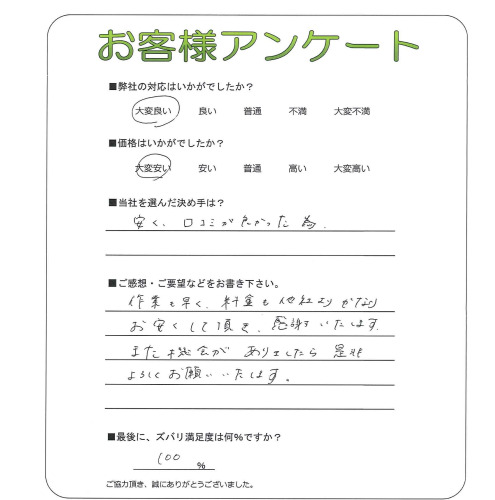 お客様アンケート
■弊社の対応はいかがでしたか？
大変良い 良い 普通 不満 大変不満
■価格はいかがでしたか？
大変安い 安い 普通 高い 大変高い
■当社を選んだ決め手は？
安く、口コミが良かった為。
■ご感想・ご要望などをお書き下さい。
作業も早く、料金も他社よりかなり
お安くして頂き、感謝いたします。
また機会がありましたら是非
よろしくお願いいたします。
■最後に、ズバリ満足度は何％ですか？
100 ％
ご協力頂き、誠にありがとうございました。